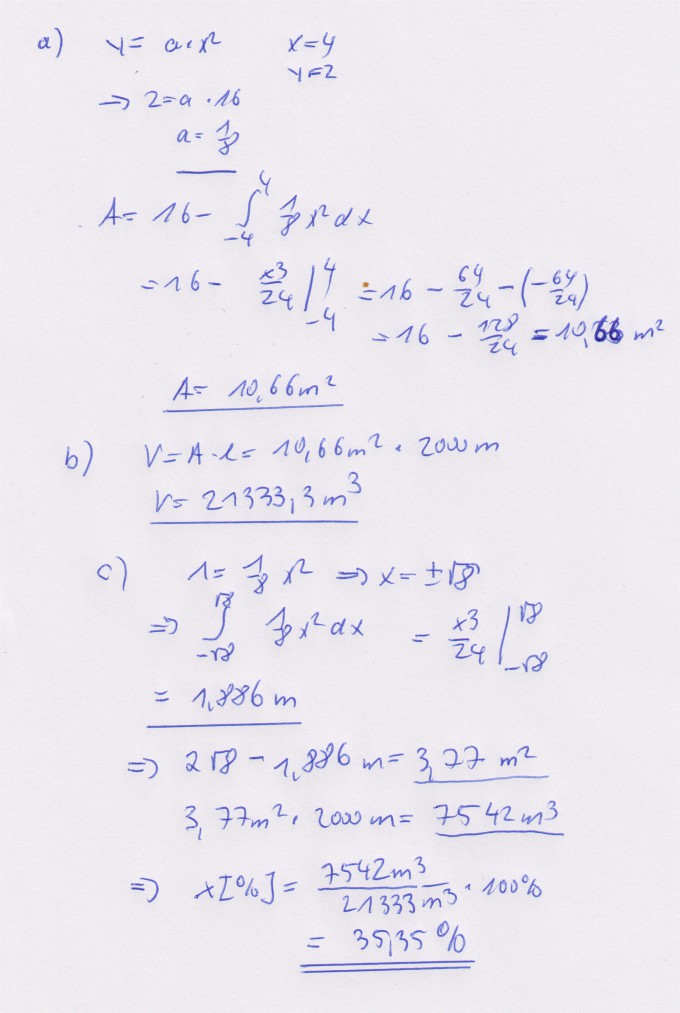 a) y = a·x² x=4
y=2
=> 2=a·16
a= 1/8
A= 16 - ∫₋₄⁴ 1/8 x² dx
=16 - x³/24 |₋₄⁴ =16 - 64/24 - (-64/24)
= 16 - 128/24 = 10,66 m²
A= 10,66m²
b) V=A·l= 10,66m² · 2000m
V= 21333,3m³
c) 1= 1/8 x² => x= ±√8
=> ∫₋√8^√8 1/8 x² dx = x³/24 |₋√8^√8
= 1,886 m
=> 2√8 - 1,886 m= 3,77 m²
3,77m²· 2000m= 7542m³
=> x[%]= 7542m³/21333m³ · 100%
= 35,35%